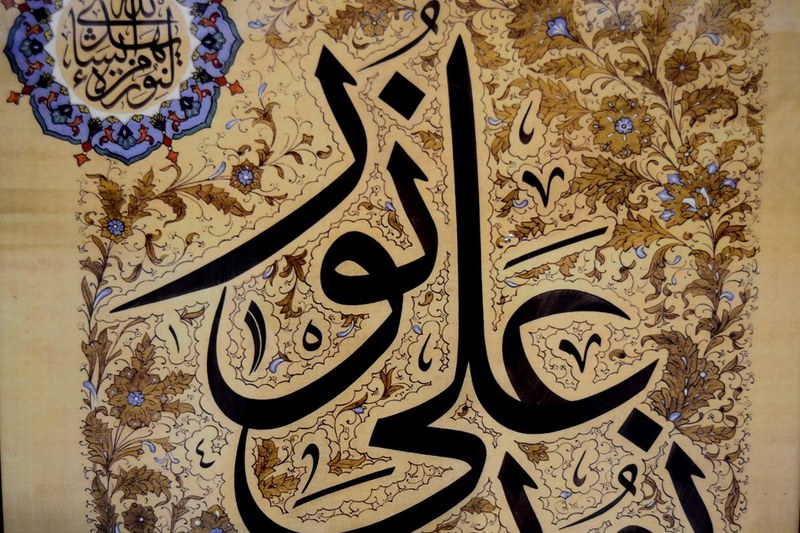 يهدي الله لنوره من يشاء
على نور